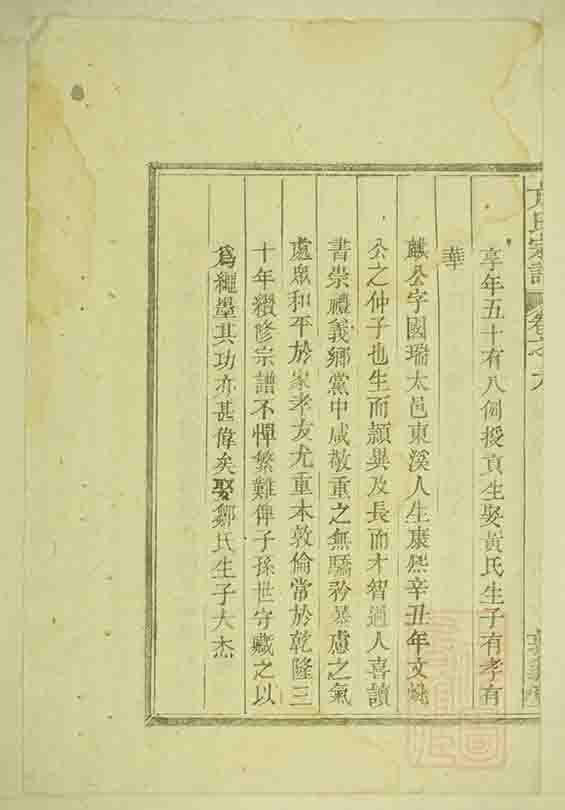 氏宗譜 卷之
享年五十有八例授貢生娶黃氏生子有孝有
華
麒公字國瑞太邑東溪人生康熙辛丑年文
公之仲子也生而頴異及長而才智過人喜讀
書崇禮義鄉黨中咸敬重之無驕矜暴慮之氣
處衆和平於家孝友尤重木敦倫常於乾隆三
十年纘修宗譜不憚繁難俾子孫世守藏之以
爲繩墨其功亦甚偉矣娶鄒氏生子大杰